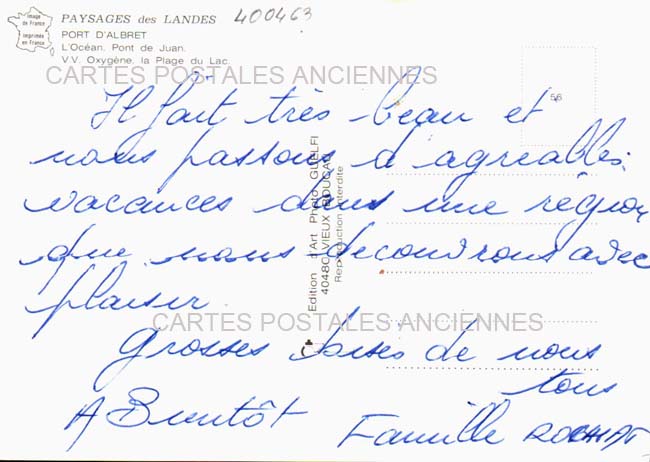 400463
Image de France
imprimée en France
PAYSAGES des LANDES
PORT D'ALBRET
L'Océan. Pont de Juan.
V.V. Oxygène. la Plage du Lac.
CARTES POSTALES ANCIENNES
56
Il fait très beau et
nous passons d agreables
vacances dans une région
que nous decouvrons avec
plaisir.
CARTES POSTALES ANCIENNES
Grosses bises de nous
tous
A Bientôt Famille
Edition d'Art Photo GUELFI
40480 VIEUX BOUCAU
Reproduction interdite